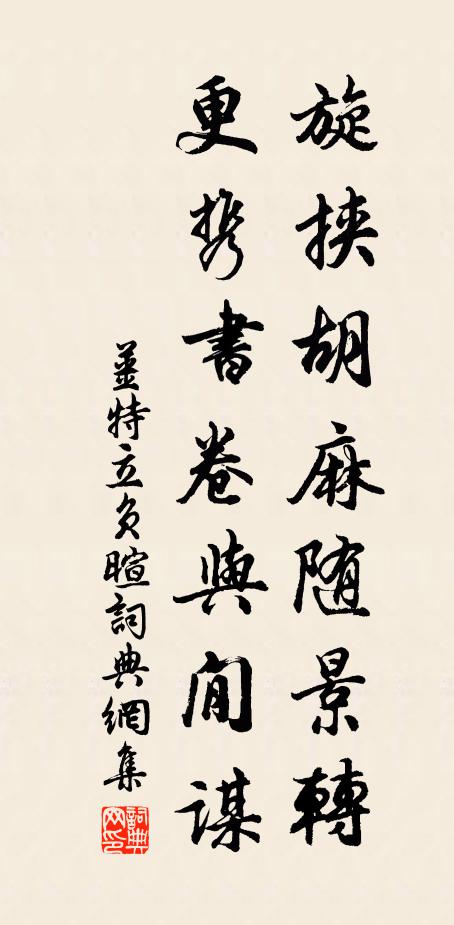 旋挟胡麻随景轉
更携書卷與閒謀
姜特立負暄詞典網集
詞典網印